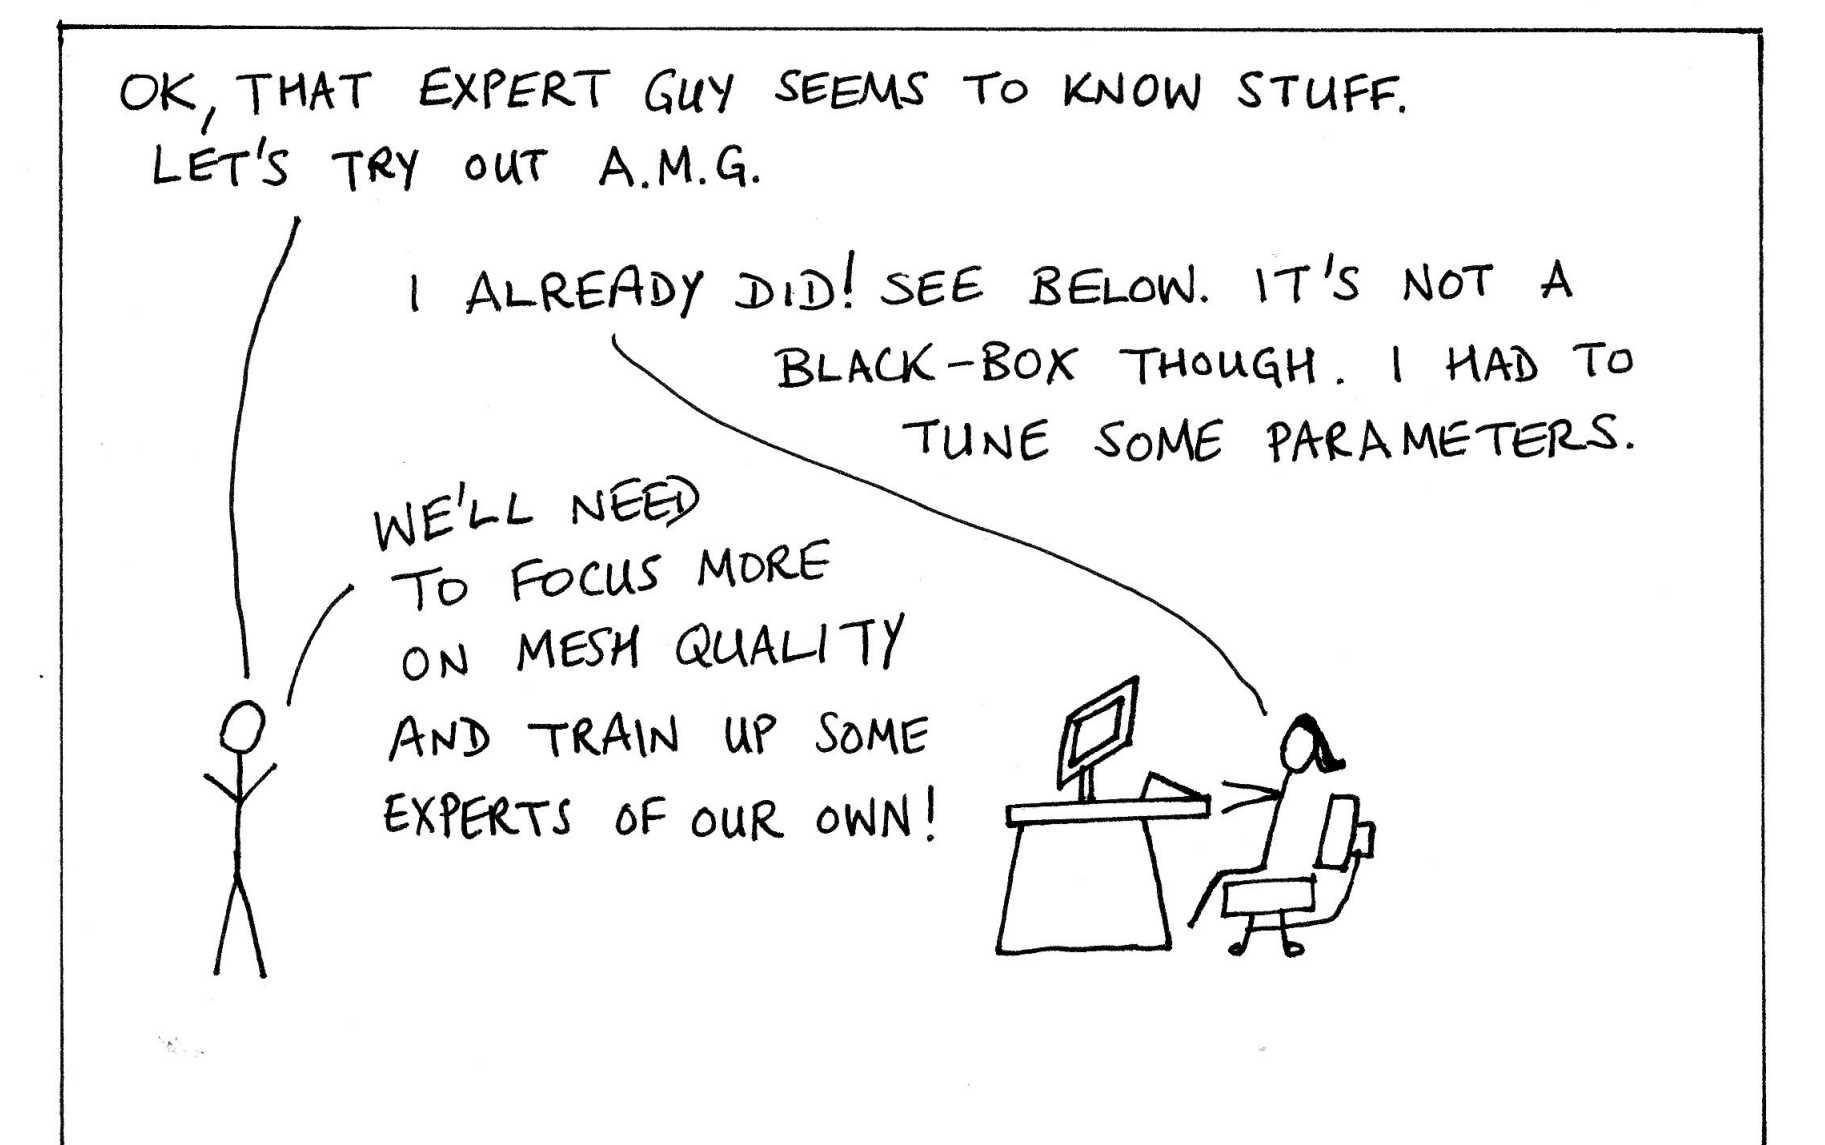 OK, THAT EXPERT GUY SEEMS TO KNOW STUFF.
LET'S TRY OUT A.M.G.
I ALREADY DID! SEE BELOW. IT'S NOT A
BLACK-BOX THOUGH. I HAD TO
TUNE SOME PARAMETERS.
WE'LL NEED
TO FOCUS MORE
ON MESH QUALITY
AND TRAIN UP SOME
EXPERTS OF OUR OWN!